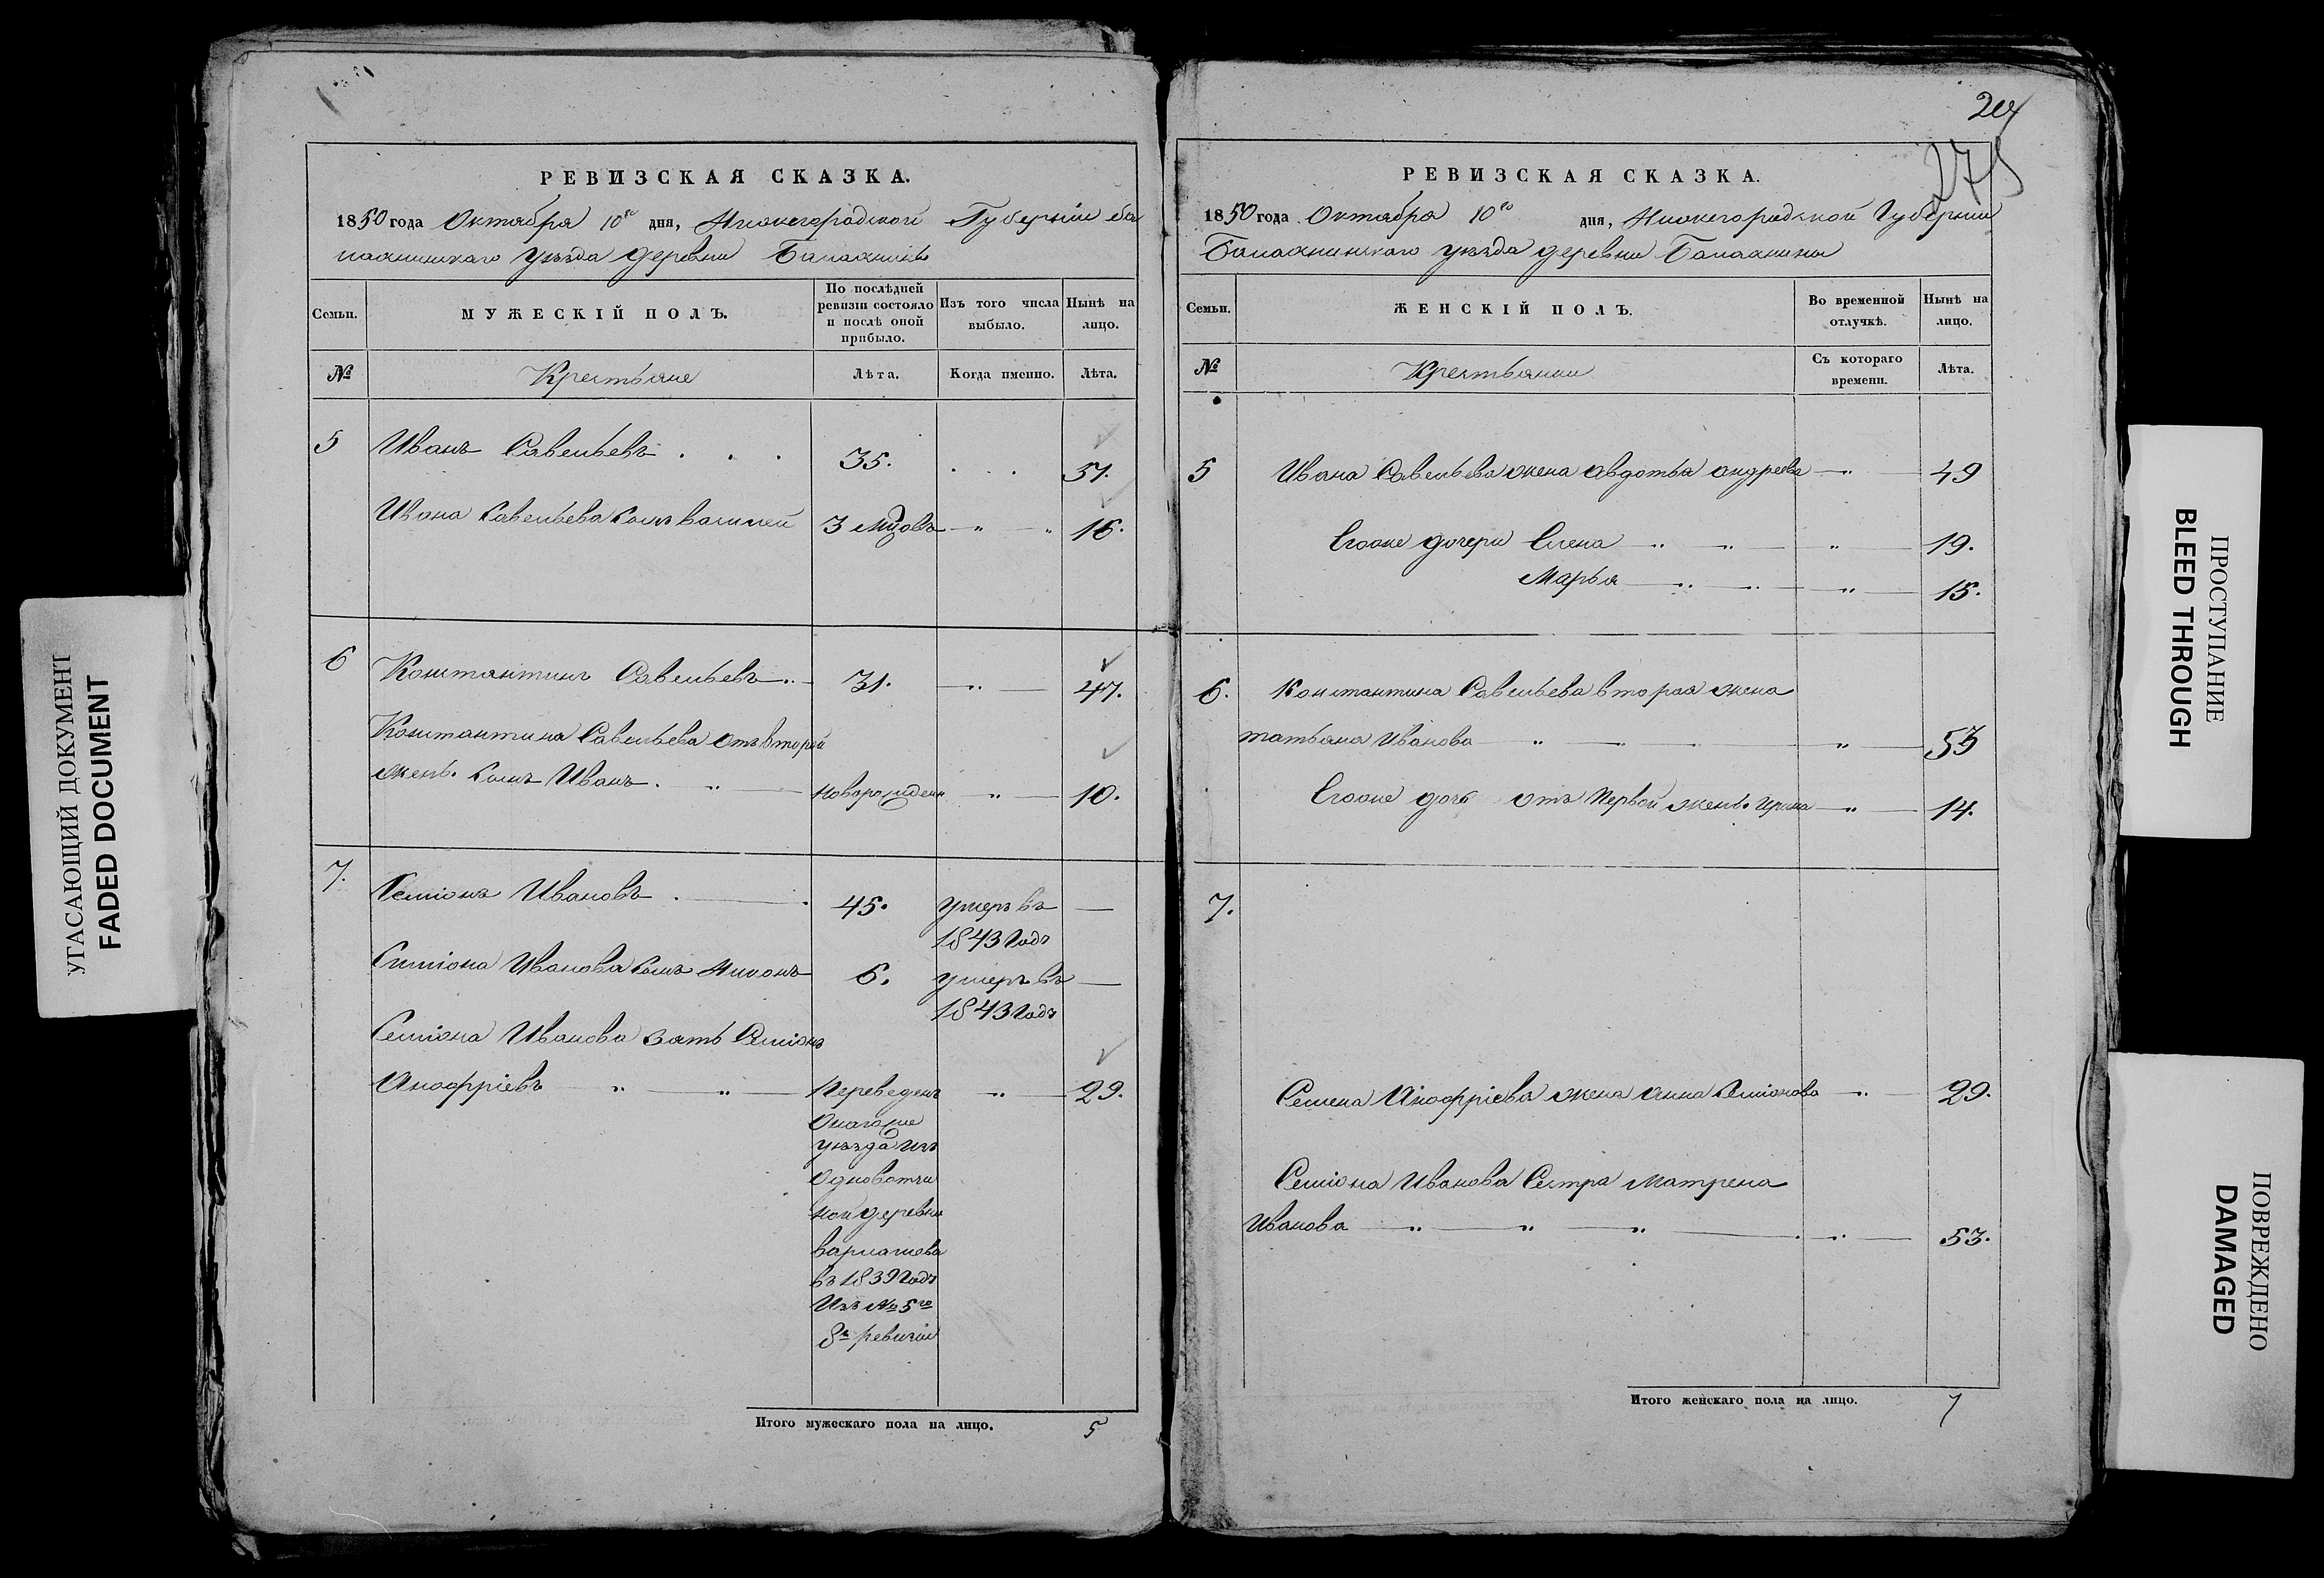 РЕВИЗСКАЯ СКАЗКА.
1850 года Октября 10го дня, Нижегородской Губернiи Ба
лахнинскаго уѣзда деревни
Семьи.
МУЖЕСКІЙ ПОЛЪ.
По послѣдней ревизіи состояло и послѣ оной прибыло.
Изъ того числа выбыло.
Нынѣ на лицо.
№
Крестьяне
Лѣта.
Когда именно.
Лѣта.
5 Иванъ Савельевъ . . . 35. . . . 51.
Ивана Савельева сынъ Василей 3 мцовъ " " 16.
6 Константинъ Савельевъ 31. " 47.
Константина Савельева отъ второй
женѣ сынъ Иванъ . " новорожден " 10.
7. Семіонъ Ивановъ . . 45. умеръ въ —
1843 годѣ
Симіона Иванова сынъ 6. умеръ въ —
1843 годѣ
Семіона Иванова зять Семіонъ
Анофріевъ " " Переведенъ " 29.
онагоже
уѣзда изъ
одновотчи
ной деревни
въ 1839 годѣ
Изъ № 5го
8й ревизіи
Итого мужескаго пола на лицо. 5
275
РЕВИЗСКАЯ СКАЗКА.
1850 года Октября 10го дня, Нижегородской Губернии
Балахнинскаго уѣзда деревни
Семьи.
ЖЕНСКІЙ ПОЛЪ.
Во временной отлучкѣ.
Нынѣ на лицо.
№
Крестьянки
Съ котораго времени.
Лѣта.
5 Ивана Савельева жена Авдотья Андреева " 49
Егоже дочери Елена " " " 19.
Марья " " " 15.
6. Константина Савельева вторая жена
татьяна Иванова " " 53
Егоже дочь отъ Первой женѣ Ирина " 14.
7.
Семена Анофріева жена Анна Семіонова " 29.
Семіона Иванова Сестра Матрена
Иванова " " " " 53.
Итого женскаго пола на лицо. 7
УГАСАЮЩИЙ ДОКУМЕНТ
FADED DOCUMENT
ПРОСТУПАНИЕ
BLEED THROUGH
ПОВРЕЖДЕНО
DAMAGED